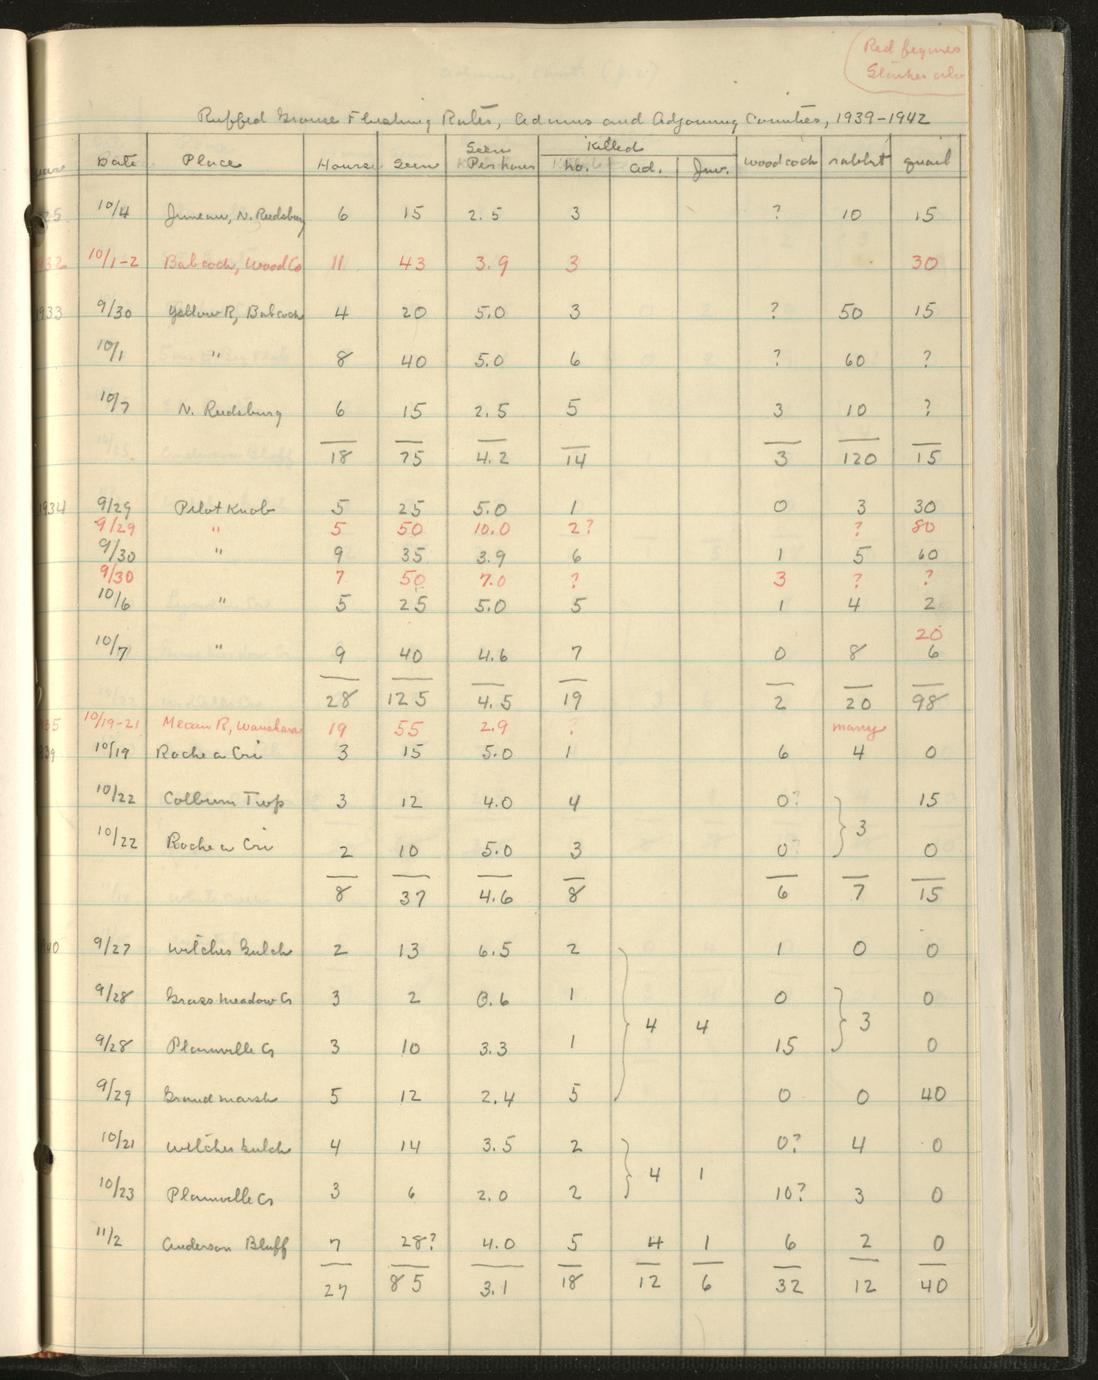 Red figures
Ruffed Grouse Flushing Rates, Adams and Adjoining Counties, 1939-1942
Date Place Hours Seen Seen Per hour Killed no. ad. Juv. woodcock rabbit quail
25 10/4 Juneau, N. Reedsburg 6 15 2.5 3 ? 10 15
32 10/1-2 Babcock, Wood Co 11 43 3.9 3 30
933 9/30 Yellow R, Babcock 4 20 5.0 3 ? 50 15
10/1 " 8 40 5.0 6 ? 60 ?
10/7 N. Reedsburg 6 15 2.5 5 3 10 ?
18 75 4.2 14 3 120 15
934 9/29 Pilot Knob 5 25 5.0 1 0 3 30
9/29 " 5 50 10.0 2? ? 80
9/30 " 9 35 3.9 6 1 5 60
9/30 7 50 7.0 ? 3 ? ?
10/6 " 5 25 5.0 5 1 4 2
20
10/7 " 9 40 4.6 7 0 8 6
28 125 4.5 19 2 20 98
35 10/19-21 Mecan R, Waushara 19 55 2.9 ? many
39 10/19 Roche a Cri 3 15 5.0 1 6 4 0
10/22 Colburn Twp 3 12 4.0 4 0? 15
3
10/22 Roche a Cri 2 10 5.0 3 0? 0
8 37 4.6 8 6 7 15
40 9/27 Witches Gulch 2 13 6.5 2 1 0 0
9/28 Grass Meadow Cr 3 2 0.6 1 0 0
4 4 3
9/28 Plainville Cr 3 10 3.3 1 15 0
9/29 Grand Marsh 5 12 2.4 5 0 0 40
10/21 Witches Gulch 4 14 3.5 2 0? 4 0
4 1
10/23 Plainville Cr 3 6 2.0 2 10? 3 0
11/2 Anderson Bluff 7 28? 4.0 5 4 1 6 2 0
27 85 3.1 18 12 6 32 12 40